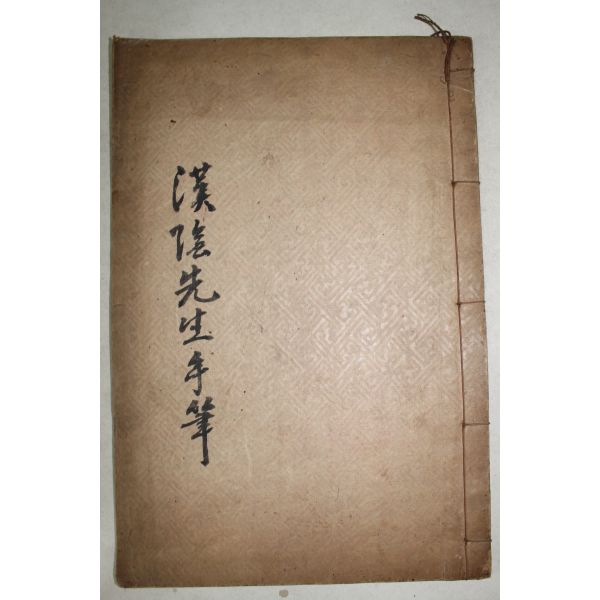 漢陰先生手筆